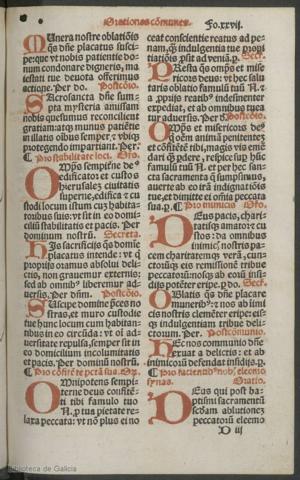 Orationes cõmunes.
Fo.xxvij.
Munera nostre oblatiõis
q̃s dñe placatus susci-
pe: que vt nobis patientie do-
num condonare digneris, ma
iestati tue deuota offerimus
actione. Per do. Postcõio.
Sacrosancta dñe sum-
pta mysteria amissam
nobis quesumus reconcilient
gratiam: atq̃ munus patiẽtie
in illatis oĩbus semper, & vbiq̃
protegendo impartiant. Per
¶ Pro stabilitate loci. Oro.
Omps sempiterne de'
edificator et custos
hierusalẽ ciuitatis
superne, edifica & cu
stodi locum istum cũ habita-
toribus suis: vt sit in eo domi-
ciliũ stabilitatis et pacis. Per
dominum nostrum. Secreta.
His sacrificijs q̃s domine
placatus intende: vt q̃
proprijs oramus absolui deli-
ctis, non grauemur externis:
sed ab omnib' liberemur ad-
uersis. Per dñm. Postcõio.
Suscipe domine preces no
stras, et muro custodie
tue hunc locum cum habitan-
tibus in eo circũda: vt oĩ ad-
uersitate repulsa, semper sit in
eo domicilium incolumitatis
et pacis. Per dominũ nostrũ.
¶ Pro cõfitẽte pctã sua. Oro.
Omnipotens sempi-
terne deus confitẽ-
ti tibi famulo tuo
N. p̱ tua pietate re-
laxa peccata: vt nõ plus ei no
ceat conscientie reatus ad pe-
nam, q̃ indulgentia tue propi
tiatiõis p̱sit ad veniã. p̱. Secr.
Presta q̃s omps et mise
ricors deus: vt hec salu
taris oblatio famulũ tuũ N. &
a proprijs reatib' indesinenter
expediat, et ab omnibus tuea
tur aduersis. Per d. Postcõio.
Omps et misericors de'
q̃ oẽm animã penitentẽ
et cõfitẽtẽ tibi, magis vis emẽ
dari q̃ p̱dere, respice sup̱ hũc
famulũ tuũ N. et per hec san-
cta sacramenta q̃ sumpsimus,
auerte ab eo irã indignatiõis
tue, et dimitte ei omĩa peccata
sua. p̱. ¶ Pro inimicis. Oro.
Deus pacis, chari-
tatisq̃ amator et cu
stos: da omnibus
inimicis nostris pa-
cem charitatemq̃ verã, cun-
ctorũq̃ eis remissionẽ tribue
peccatorũ: nosq̃ ab eorũ insi-
dijs potẽter eripe. p̱ do. Secr.
Oblatis q̃s dñe placare
munerib': & nos ab inimi
cis nostris clemẽter eripe: eis-
q̃ indulgentiam tribue deli-
ctorum. Per. Postcommunio.
Hec nos communio dñe
exuat a delictis: et ab
inimicorũ defendat insidijs. p̱.
¶ Pro facientib' nob' eleemo
synas. Oratio.
Deus qui post ba-
ptismi sacramentũ
scdam ablutionẽ
peccatorũ elemo
D iij
Biblioteca de Galicia